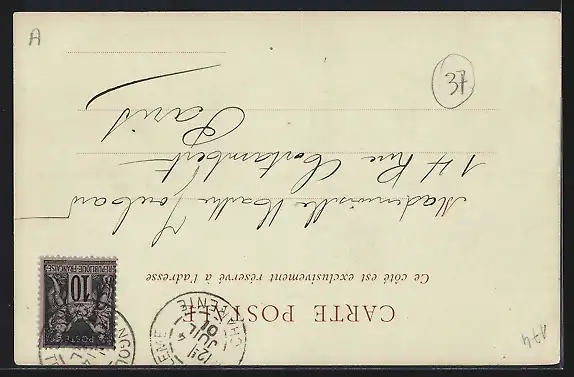 CARTE POSTALE
Ce côté est exclusivement réservé à l'adresse
Mademoiselle Marthe
14 Rue Cortambert
Paris
REPUBLIQUE FRANÇAISE
10
POSTES
CHARENTE
12
4
JUIL
01
37
A
174